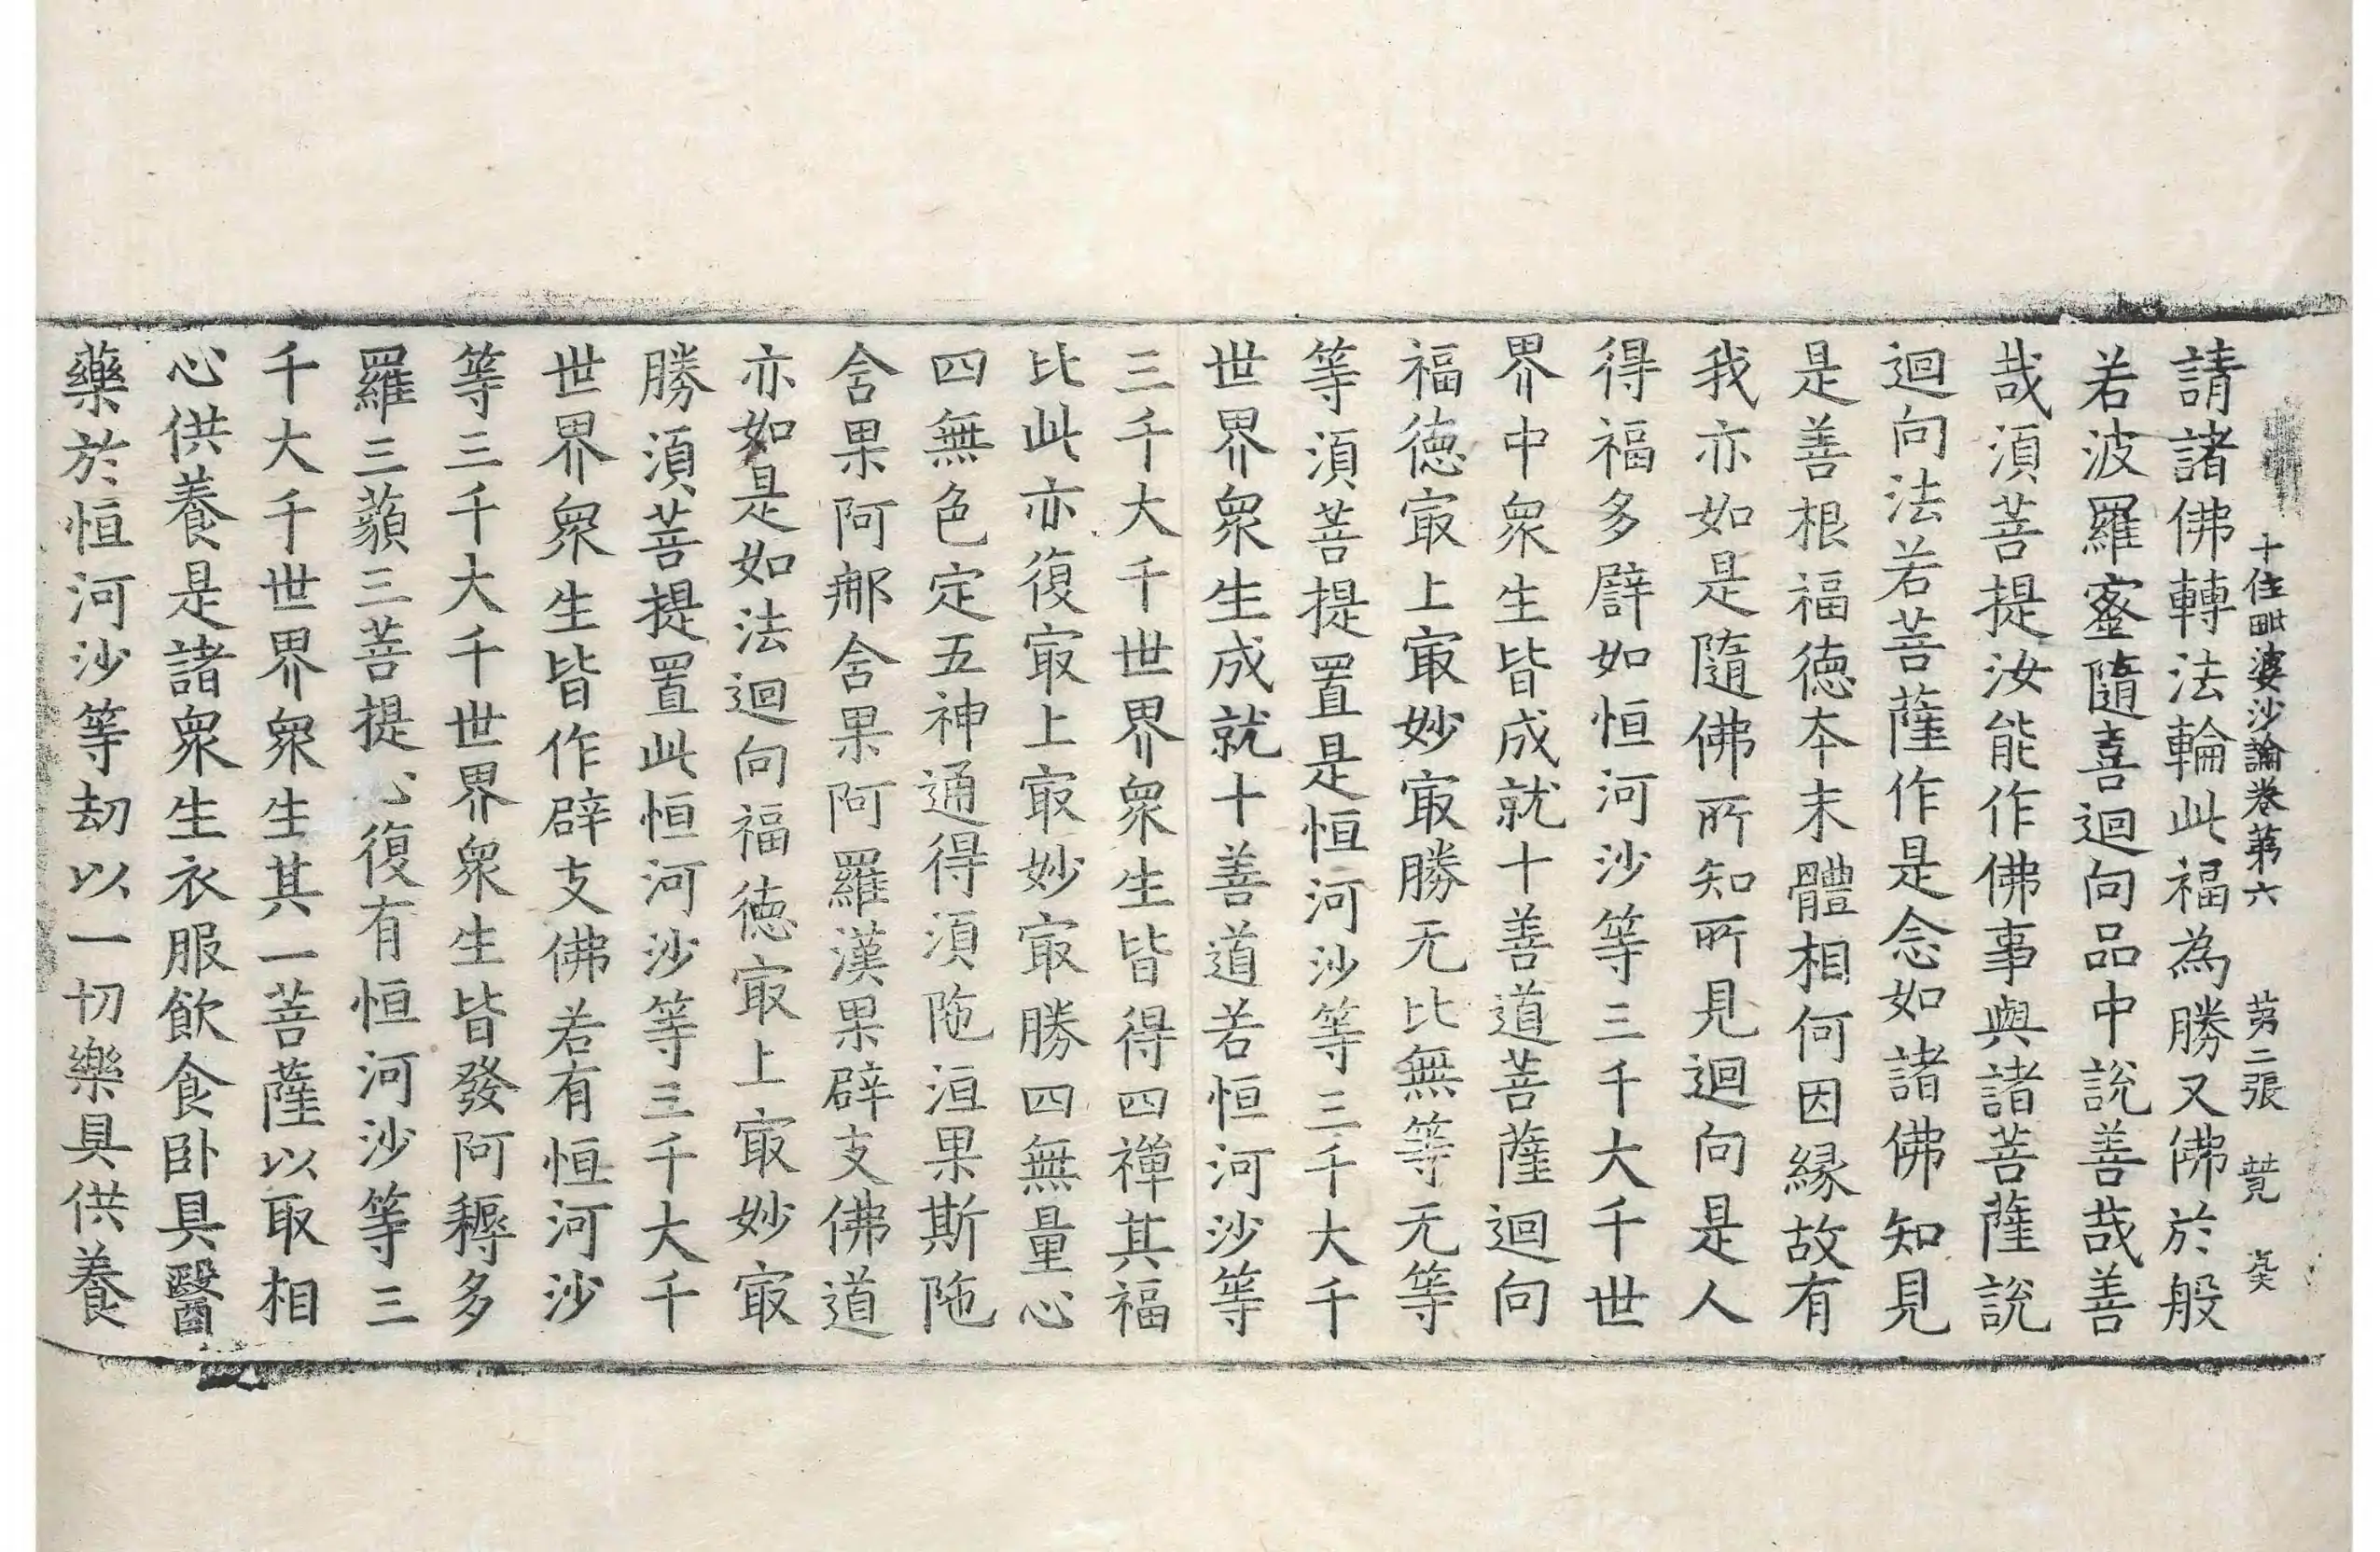 十住毗婆沙論卷第六　第二張　
請諸佛轉法輪此福為勝又佛於般
若波羅蜜隨喜迴向品中說善哉善
哉須菩提汝能作佛事與諸菩薩說
迴向法若菩薩作是念如諸佛知見
是善根福德夲末體相何因緣故有
我亦如是隨佛所知所見迴向是人
得福多譬如恒河沙等三千大千世
界中衆生皆成就十善道菩薩迴向
福德㝡上㝡妙㝡勝无比無等无等
等須菩提置是恒河沙等三千大千
世界衆生成就十善道若恒河沙等
三千大千世界衆生皆得四禪其福
比此亦復㝡上㝡妙㝡勝四無量心
四無色定五神通得須陁洹果斯陁
含果阿那含果阿羅漢果辟支佛道
亦如是如法迴向福德㝡上㝡妙㝡
勝須菩提置此恒河沙等三千大千
世界衆生皆作辟支佛若有恒河沙
等三千大千世界衆生皆發阿耨多
羅三藐三菩提心復有恒河沙等三
千大千世界衆生其一菩薩以取相
心供養是諸衆生衣服飲食卧具醫
藥於恒河沙等劫以一切樂具供養